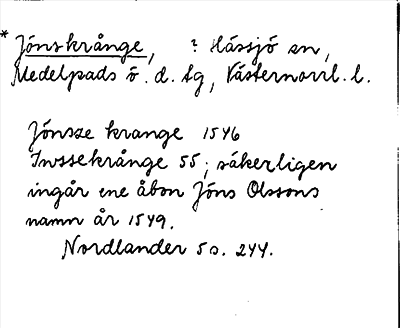 * Jönskrånge, ? Hässjö sn,
Medelpads ö. d. tg, Västernorrl. l.
Jönsse krange 1546
Inssekrånge 55; säkerligen
ingår ene åbon Jöns Olssons
namn år 1549.
Nordlander 5 s. 244.